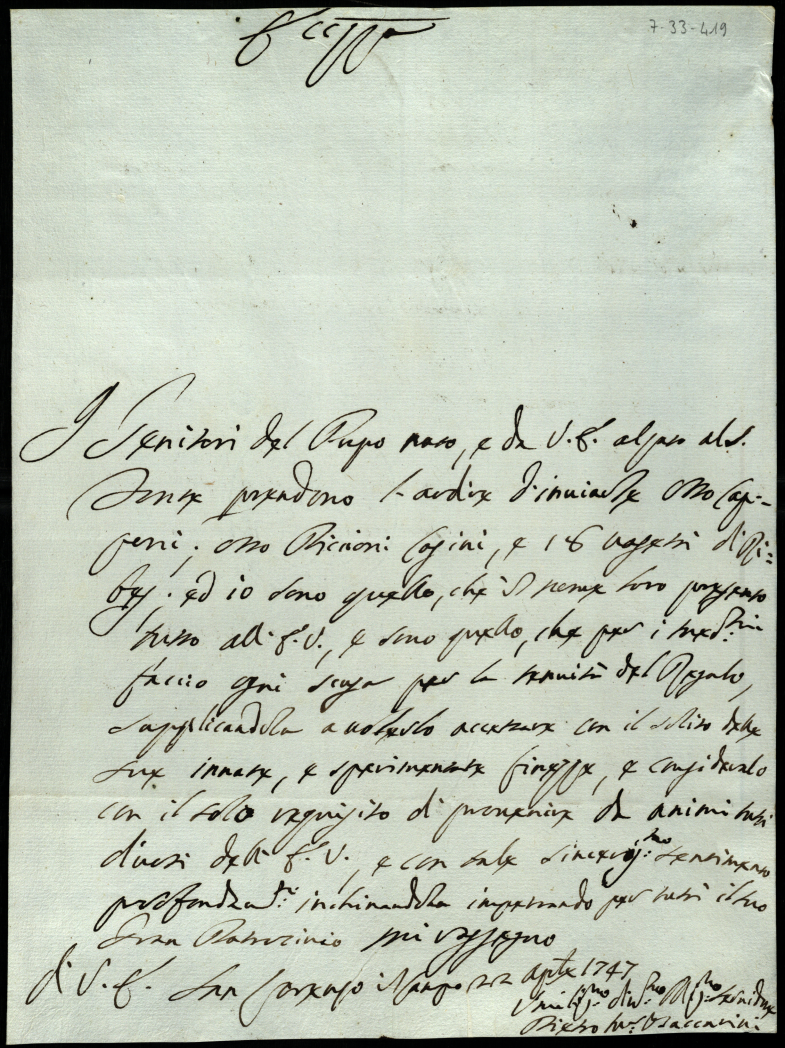 7-33-419
Ecc:za
I Genitori del Pupo nato, e da V. E. alzato al S.
Fonte prendono l'ardire d'inviarle otto Cap-
poni, otto Piccioni Casini, e 18
ed io sono quello, che à nome loro presento
tutto all'E. V., e sono quello, che per i med:mi
faccio ogni scusa per la tenuità del Regalo,
supplicandola a volerlo accettare con il solito delle
sue innate, e sperimentate finezze, e considerarlo
con il solo requisito di provenire da animi tutti
divoti dell'E. V., e con tale sinceris:mo sentimento
profondam:te inchinandola imperando per tutti il suo
Gran Patrocinio mi rassegno
di V. E. San Lorenzo in Campo 22 Aprile 1747
Umilis:mo div:mo Oblig:mo Servidore
Pietro